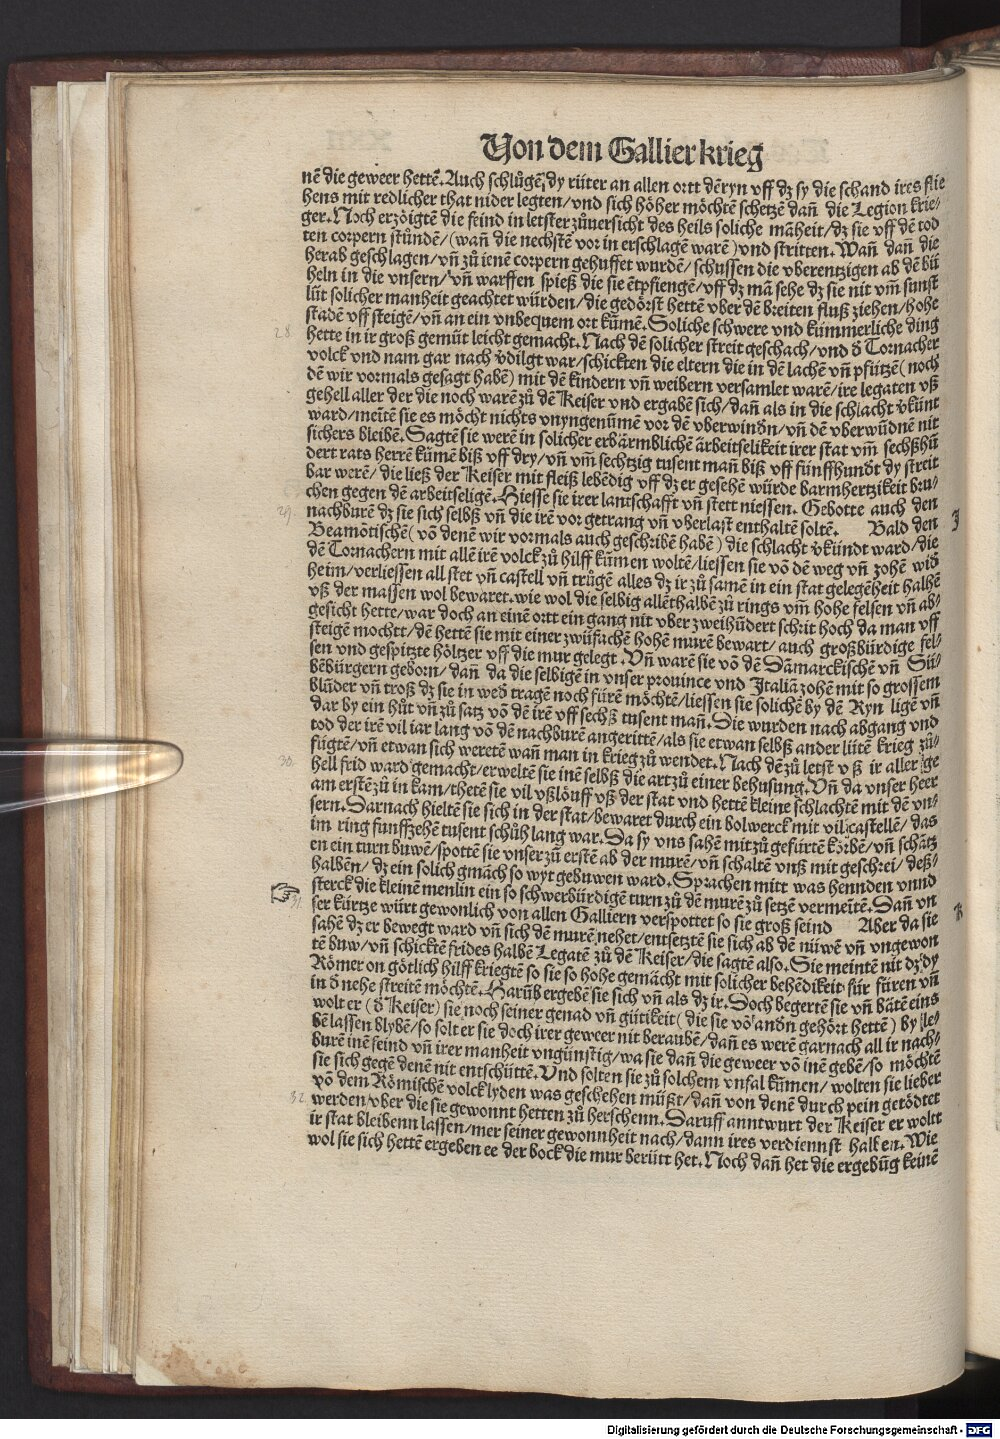 Von dem Gallier krieg
nē die geweer hettē. Auch schlůgē, dy rüter an allen ortt dēryn vff dz sy die schand ires flie
hens mit redlicher that nider legten/ vnd sich höher möchtē schetzē dañ die Legion krie-
ger. Noch erzöigtē die feind in letster zůuersicht des heils soliche māheit/ dz sie vff dē tod
ten corpern stündē/ (wañ die nechstē vor in erschlagē warē) vnd stritten. Wañ dañ die
herab geschlagen/ vñ zů ienē corpern gehuffet wurdē/ schussen die vberentzigen ab dē bü
heln in die vnsern/ vñ warffen spieß die sie ētpfiengē/ vff dz mā sehe dz sie nit vm̃ sunst
lüt solicher manheit geachtet würden/ die gedörst hettē vber dē breiten fluß ziehen/ hohe
stadē vff steigē/ vñ an ein vnbequem ort kūmē. Soliche schwere vnd kummerliche ding
28 hette in ir groß gemüt leicht gemacht. Nach dē solicher streit geschach/ vnd ð Tornacher
volck vnd nam gar nach v̄dilgt war/ schickten die eltern die in dē lachē vñ pfützē (noch
dē wir vormals gesagt habē) mit dē kindern vñ weibern versamlet warē/ ire legaten vß
gehell aller der die noch warē zů dē Keiser vnd ergabē sich/ dañ als in die schlacht v̄künt
ward/ meītē sie es möcht nichts vnyngenūmē vor dē vberwinðn/ vñ dē vberwūdnē nit
sichers bleibē. Sagtē sie werē in solicher erbärmblichē ärbeitselikeit irer stat vm̃ sechßhū
dert rats herrē kūmē biß vff dry/ vñ vm̃ sechtzig tusent mañ biß vff fünffhundt dy streit
bar werē/ die ließ der Keiser mit fleiß lebēdig vff dz er gesehē würde barmhertzikeit bru-
chen gegen dē arbeitseligē. Hiesse sie irer lantschafft vñ stett niessen. Gebotte auch den
29 nachburē dz sie sich selbß vñ die irē vor getrang vñ vberlast enthaltē soltē. Bald den J
Beamōtischē (vō denē wir vormals auch geschribē habē) die schlacht v̄kündt ward/ die
dē Tornachern mit allē irē volck zů hilff kūmen woltē/ liessen sie vō dē weg vñ zohē wið
heim/ verliessen all stet vñ castell vñ trůgē alles dz ir zů samē in ein stat gelegēheit halbē
vß der massen wol bewaret. wie wol die selbig allēthalbē zů rings vm̃ hohe felsen vñ ab-
gesicht hette/ war doch an einē ortt ein gang nit vber zweihūdert schrit hoch da man vff
steigē mochtt/ dē hettē sie mit einer zwifachē hohē murē bewart/ auch großbürdige fel-
sen vnd gespitzte höltzer vff die mur gelegt. Vñ warē sie vō dē Dāmarckischē vñ Sü-
bēbürgern geborn/ dañ da die selbigē in vnser prouince vnd Italiā zohē mit so grossem
blūder vñ troß dz sie in weð tragē noch fürē möchtē/ liessen sie solichē by dē Ryn ligē vñ
dar by ein hůt vñ zů satz vō dē irē vff sechß tusent mañ. Sie wurden nach abgang vnd
tod der irē vil iar lang vō dē nachburē angerittē/ als sie etwan selbß ander lütē krieg zů-
fügtē/ vñ etwan sich weretē wañ man in krieg zů wendet. Nach dē zů letst vß ir aller ge
30. hell frid ward gemacht/ erweltē sie inē selbß die art zů einer behusung. Vñ da vnser heer
am erstē zů in kam/ thetē sie vil vßlöuff vß der stat vnd hettē kleine schlachtē mit dē vn-
sern. Darnach hieltē sie sich in der stat/ bewaret durch ein bolwerck mit vil castellē/ das
im ring funffzehē tusent schůh lang war. Da sy vns sahē mit zů gefürtē körbē/ vñ schātz
en ein turn buwē/ spottē sie vnser zů erstē ab der murē/ vñ schaltē vnß mit geschrei/ deß-
halbē/ dz ein solich gmäch so wyt gebuwen ward. Sprachen mitt was hennden vnnd
31. sterck die kleinē menlin ein so schwerbürdigē turn zů dē murē zů setzē vermeītē. Dañ vn
ser kürtze würt gewonlich von allen Galliern verspottet so sie groß seind Aber da sie K
sahē dz er bewegt ward vñ sich dē murē nehet/ entsetztē sie sich ab dē nüwē vñ vngewon
tē buw/ vñ schicktē frides halbē Legatē zů dē Keiser/ die sagtē also. Sie meintē nit dz dy
Römer on götlich hilff kriegtē so sie so hohe gemächt mit solicher behēdikeit für füren vñ
in ð nehe streitē möchtē. Harūb ergebē sie sich vñ als dz ir. Doch begertē sie vñ bätē eins
wolt er (ð Keiser) sie noch seiner genad vñ gütikeit (die sie vō anðn gehört hettē) by le-
bē lassen blybē/ so solt er sie doch irer geweer nit beraubē/ dañ es werē garnach all ir nach-
burē inē feind vñ irer manheit vngünstig/ wa sie dañ die geweer vō inē gebē/ so möchtē
sie sich gegē denē nit entschüttē. Vnd solten sie zů solchem vnfal kūmen/ wolten sie lieber
vō dem Römischē volck lyden was geschehen müßt/ dañ von denē durch pein getödtet
32. werden/ vber die sie gewonnt hetten zů herschenn. Daruff anntwurt der Keiser er woltt
ir stat bleibenn lassen/ mer seiner gewonnheit nach/ dann ires verdiennst halben. Wie
wol sie sich hettē ergeben ee der bock die mur berürt het. Noch dañ het die ergebūg keinē
Digitalisierung gefördert durch die Deutsche Forschungsgemeinschaft - DFG